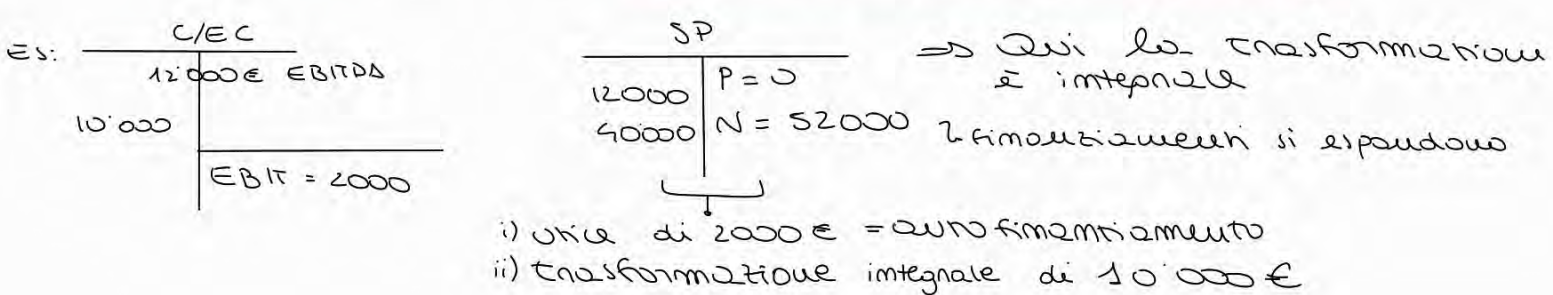 ES:
C/EC
12'000€ EBITDA
10'000
EBIT = 2000
SP
12000 P = 0
40000 N = 52000
=> Qui la trasformazione
è integrale
finanziamenti si espandono
i) utile di 2000 € = autofinanziamento
ii) trasformazione integrale di 10'000 €